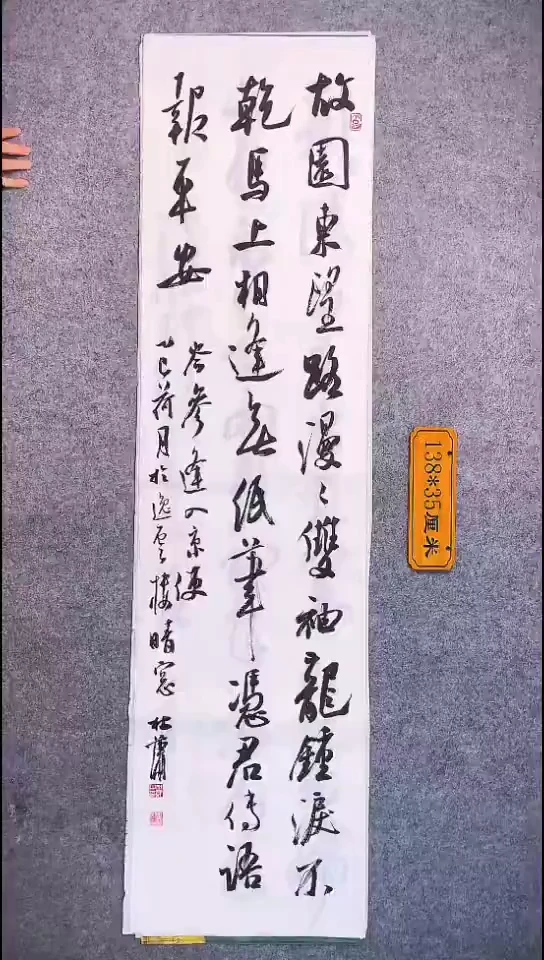 故園東望路漫〻雙袖龍鍾淚不
乾馬上相逢無紙筆憑君傳語
報平安
岑參逢入京使
乙巳荷月於逸雲樓晴窓 杜
138*35厘米